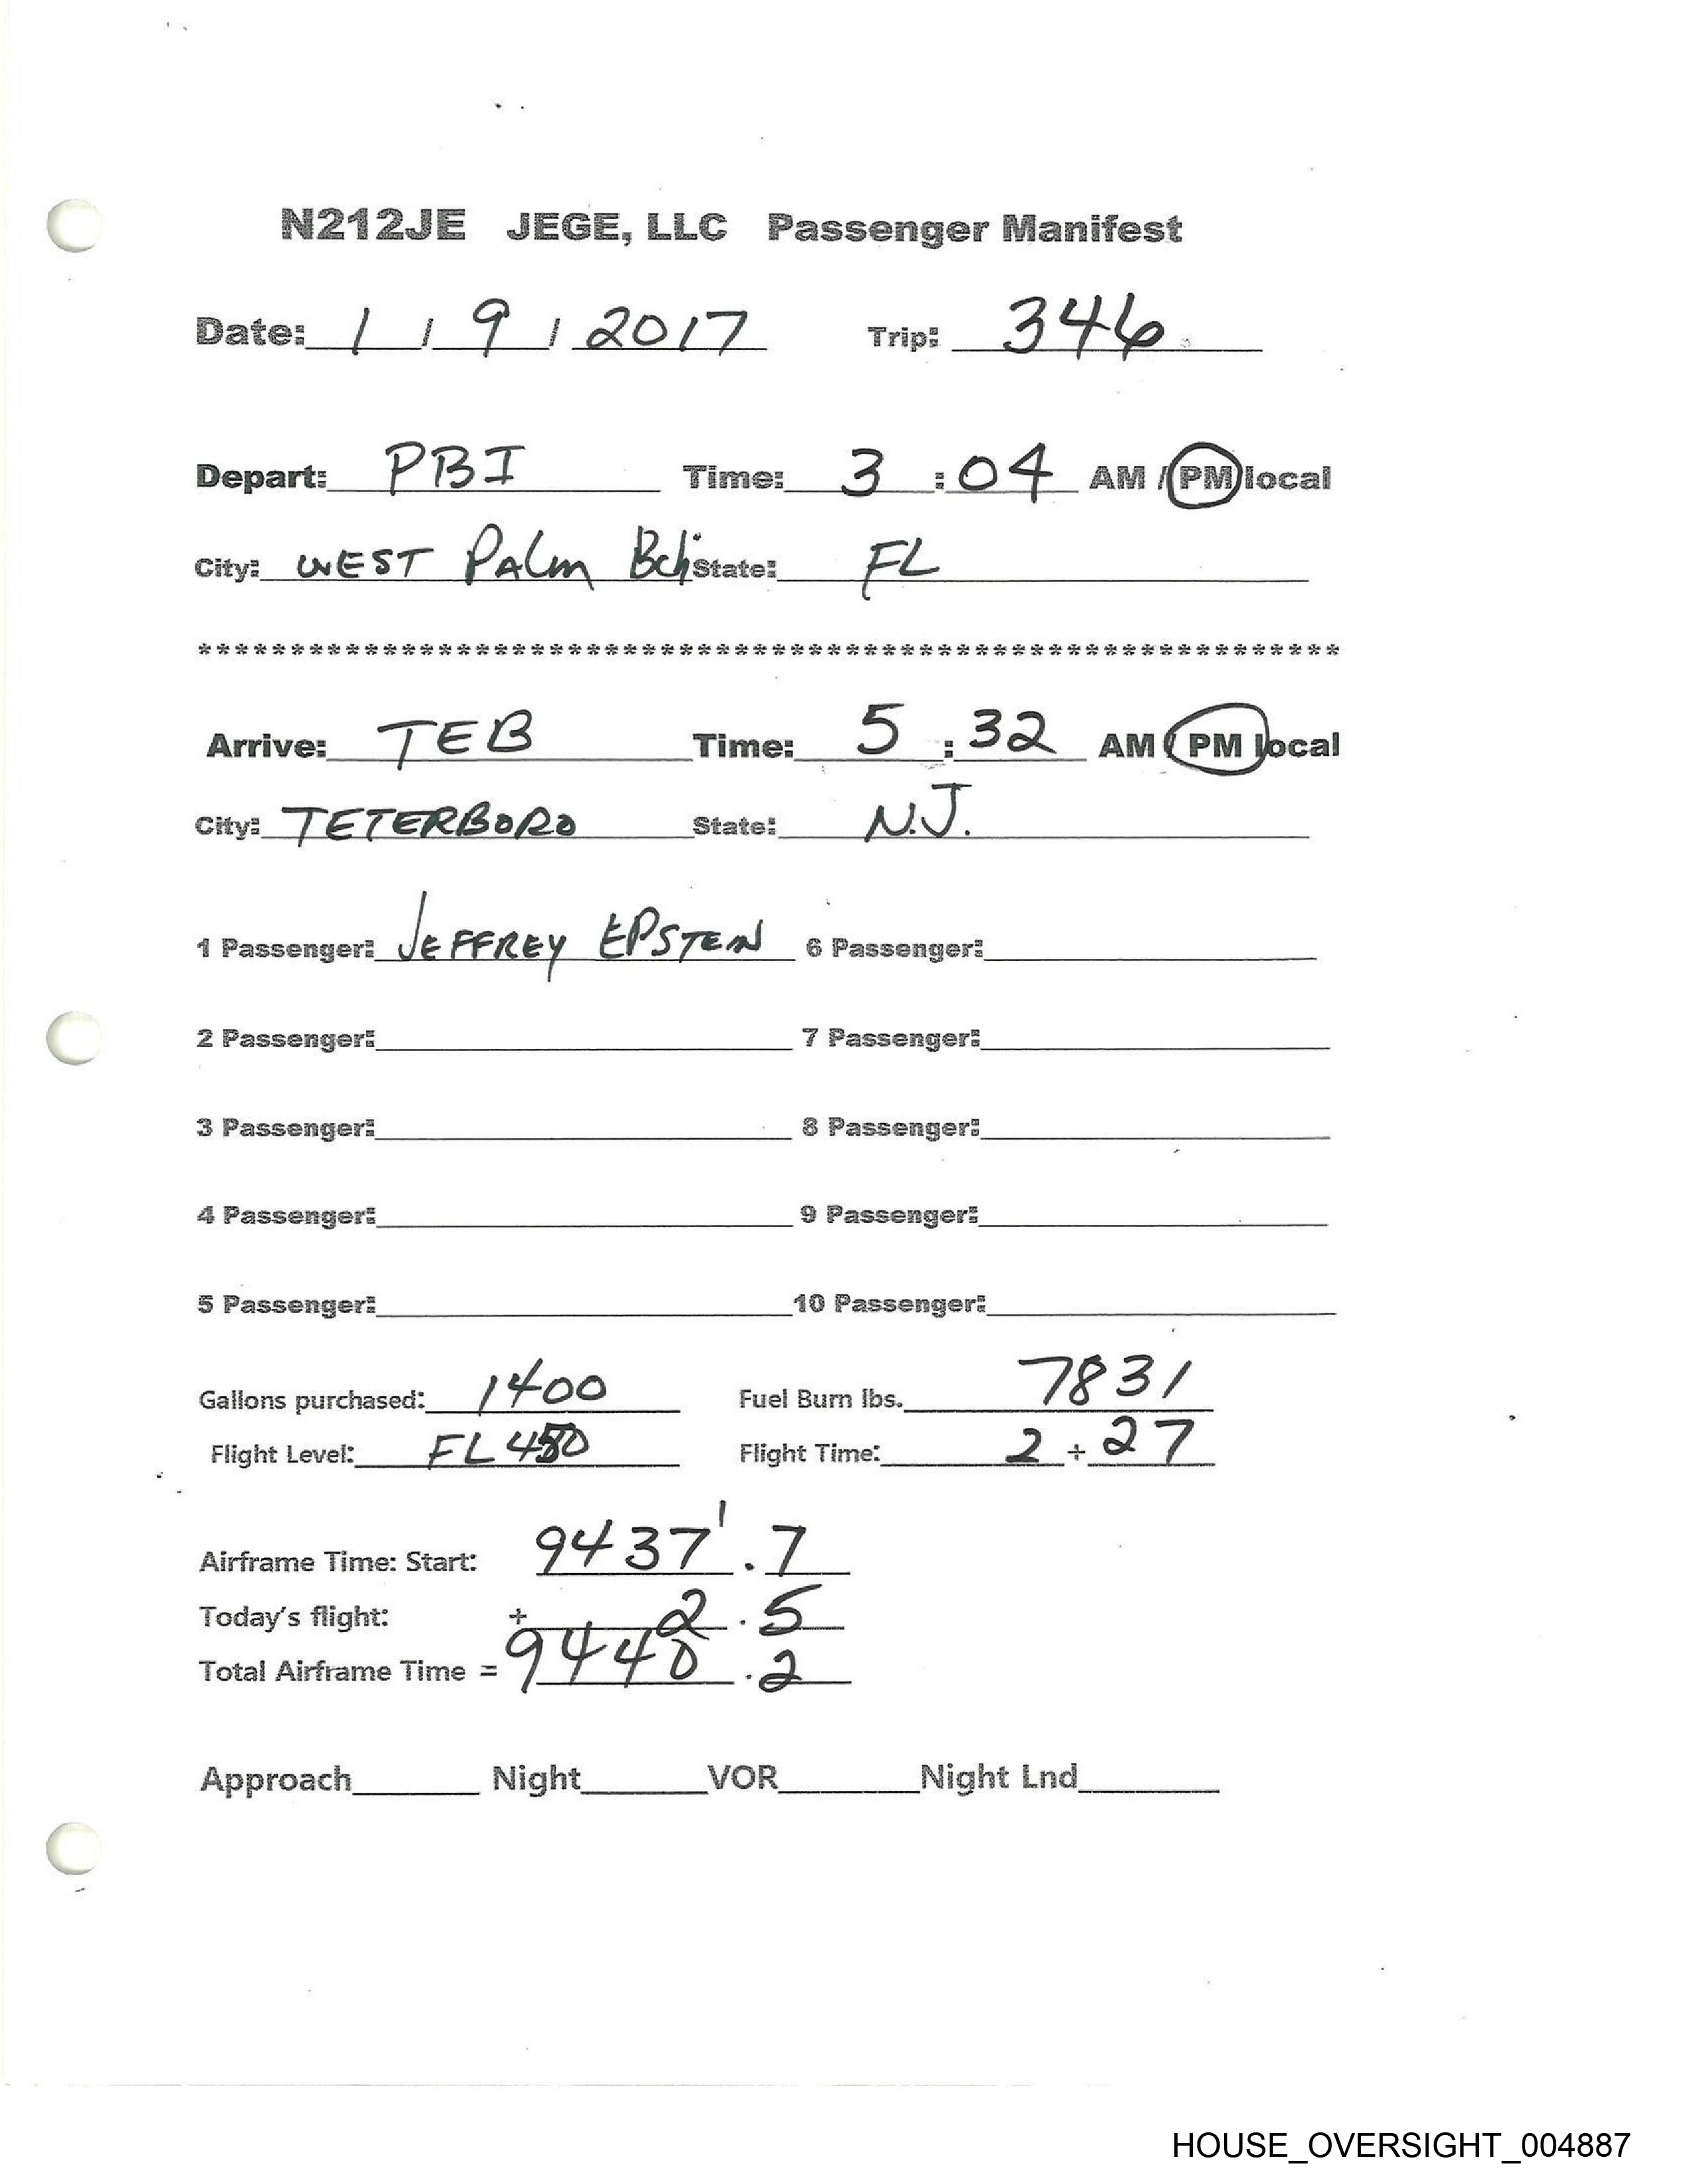 N212JE JEGE, LLC Passenger Manifest
Date: 1 / 9 / 2017 Trip: 346
Depart: PBI Time: 3 : 04 AM / PM local
City: WEST PALM Bch State: FL
**************************************************************
Arrive: TEB Time: 5 : 32 AM / PM local
City: TETERBORO State: N.J.
1 Passenger: JEFFREY EPSTEIN 6 Passenger:
2 Passenger: 7 Passenger:
3 Passenger: 8 Passenger:
4 Passenger: 9 Passenger:
5 Passenger: 10 Passenger:
Gallons purchased: 1400 Fuel Burn lbs. 7831
Flight Level: Flight Time: 2 + 27
Airframe Time: Start: 9437 . 7
Today's flight: + 2 . 5
Total Airframe Time = 9440 . 2
Approach Night VOR Night Lnd
HOUSE_OVERSIGHT_004887